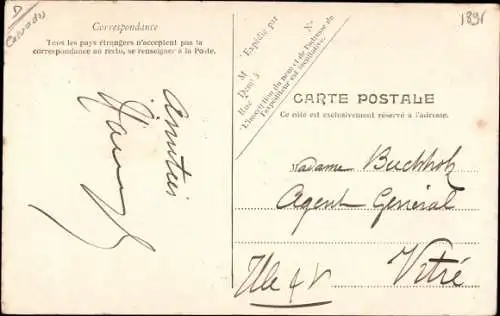 D
Calvados
Correspondance
Tous les pays étrangers n'acceptent pas la
correspondance au recto, se renseigner à la Poste.
Amitiés
Expédié par
M
Demt à
Rue
N°
L'inscription du nom et de l'adresse de
l'expéditeur est facultative.
CARTE POSTALE
Ce côté est exclusivement réservé à l'adresse.
Madame Buchholz
Agent Général
Vitré
Ille & V